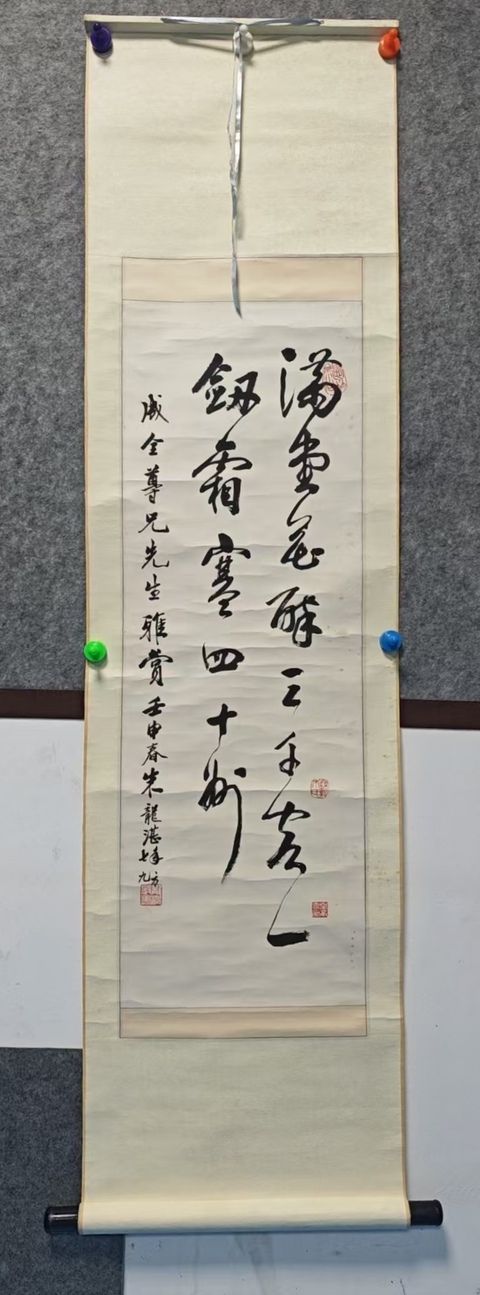 满堂花醉三千客一
劔霜寒四十州
成全尊兄先生雅赏壬申春朱龍湛年方七九